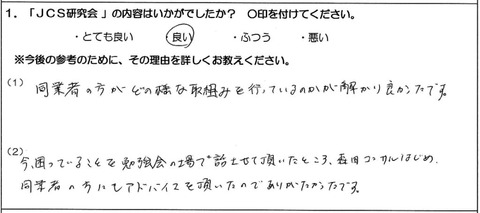 1．「JCS研究会」の内容はいかがでしたか？ ○印を付けてください。
・とても良い ・良い ・ふつう ・悪い
※今後の参考のために、その理由を詳しくお教えください。
(1)
同業者の方がどの様な取組みを行っているのかが解かり良かったです。
(2)
今、困っていることを勉強会の場で話させて頂いたところ、 コンサルはじめ、
同業者の方にもアドバイスを頂いたのでありがたかったです。